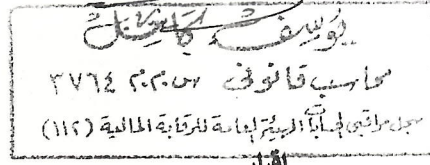 يوسف كامل
محاسب قانوني س.م.م ٣٧٦٤
سجل مراقبي حسابات الهيئة العامة للرقابة المالية (١١٢)